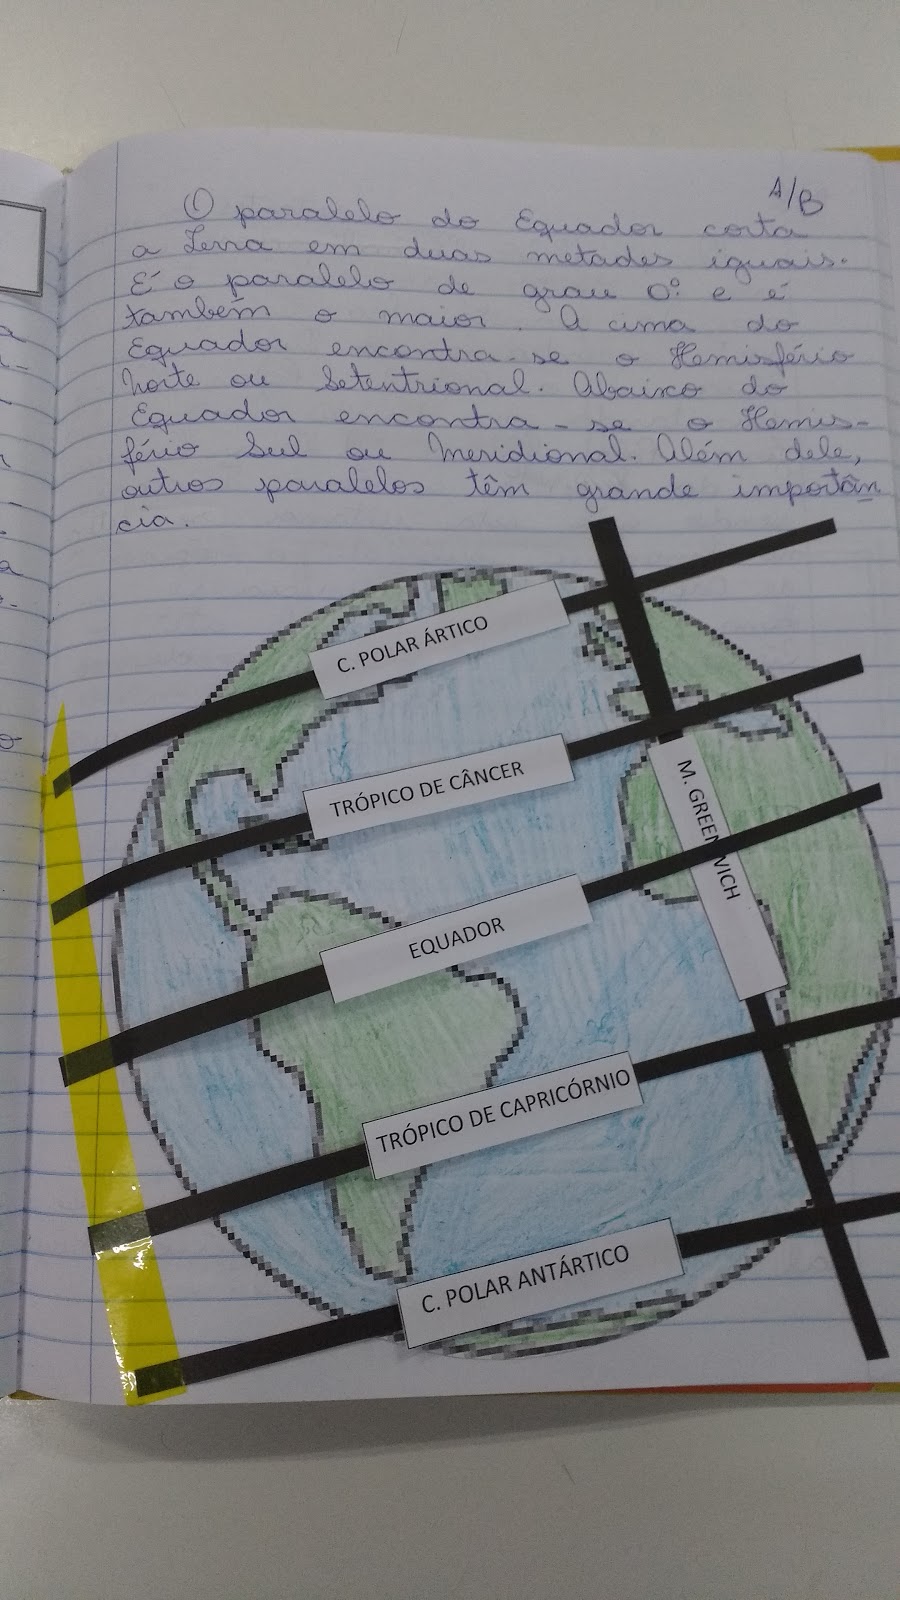 A/B
O paralelo do Equador corta
a Terra em duas metades iguais.
É o paralelo de grau 0º e é
também o maior. A cima do
Equador encontra-se o Hemisfério
Norte ou Setentrional. Abaixo do
Equador encontra-se o Hemis-
fério Sul ou Meridional. Além dele,
outros paralelos têm grande importân
cia.
C. POLAR ÁRTICO
TRÓPICO DE CÂNCER
M. GREENWICH
EQUADOR
TRÓPICO DE CAPRICÓRNIO
C. POLAR ANTÁRTICO